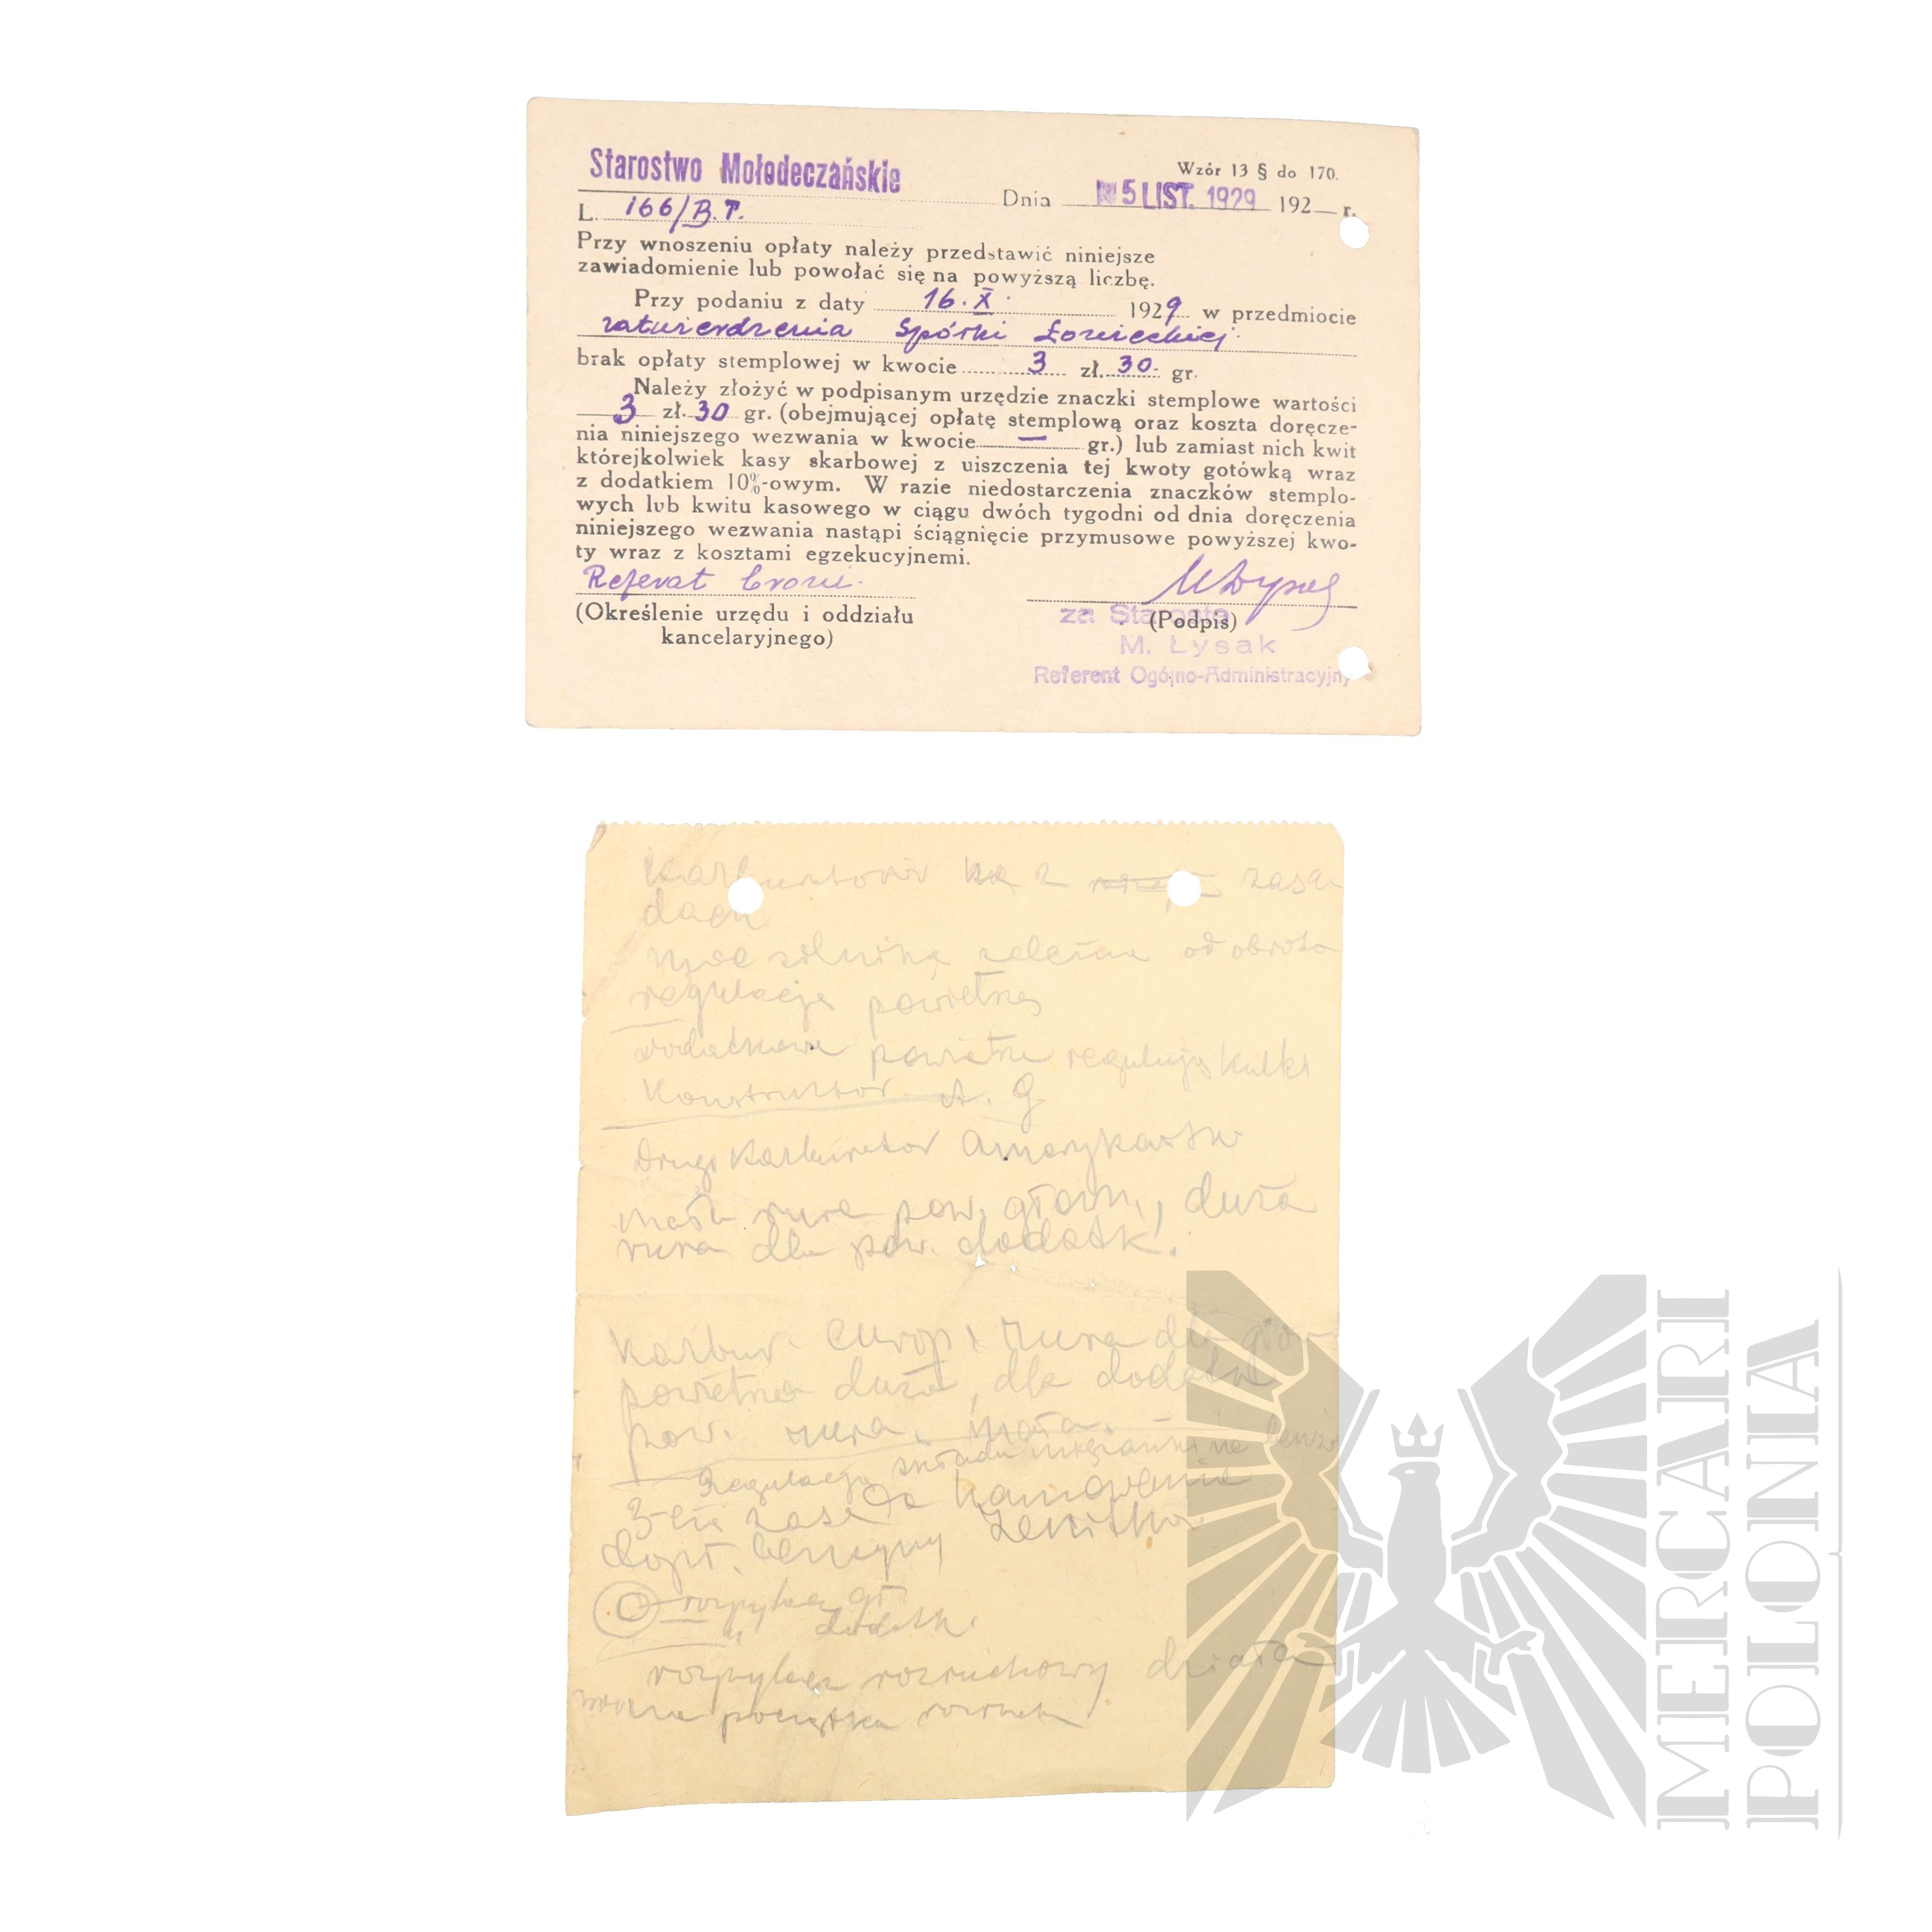 Starostwo Mołodeczańskie
Wzór 13 § do 170.
Dnia 5 LIST. 1929 192 r.
L. 166/B.T.
Przy wnoszeniu opłaty należy przedstawić niniejsze
zawiadomienie lub powołać się na powyższą liczbę.
Przy podaniu z daty 16.X. 1929 w przedmiocie
zatwierdzenia Spółki Łowieckiej.
brak opłaty stemplowej w kwocie 3 zł. 30. gr.
Należy złożyć w podpisanym urzędzie znaczki stemplowe wartości
3 zł. 30 gr. (obejmującej opłatę stemplową oraz koszta doręcze-
nia niniejszego wezwania w kwocie — gr.) lub zamiast nich kwit
którejkolwiek kasy skarbowej z uiszczenia tej kwoty gotówką wraz
z dodatkiem 10%-owym. W razie niedostarczenia znaczków stemplo-
wych lub kwitu kasowego w ciągu dwóch tygodni od dnia doręczenia
niniejszego wezwania nastąpi ściągnięcie przymusowe powyższej kwo-
ty wraz z kosztami egzekucyjnemi.
Referat
(Określenie urzędu i oddziału
kancelaryjnego)
za Starostę
(Podpis)
M. Łysak
Referent Ogólno-Administracyjny
zasa-
dach
moc silnika zależna od obrotu
regulacja powietrza
powietrze regulują kulki
Konstruktor A. G.
Drugi Karburator Amerykański
mała rura pow. głown., duża
rura dla pow. dodatk.
Karbur. europ. rura dla głow
powietrza duża, dla dodatk
pow. rura mała.
Regulacja składu mieszanki
3-cia zasada hamowania
dopł. benzyny Zenitha
rozpylacz gł.
" dodatk.
rozpylacz rozruchowy działa
początku
MERCARI
POLONIA